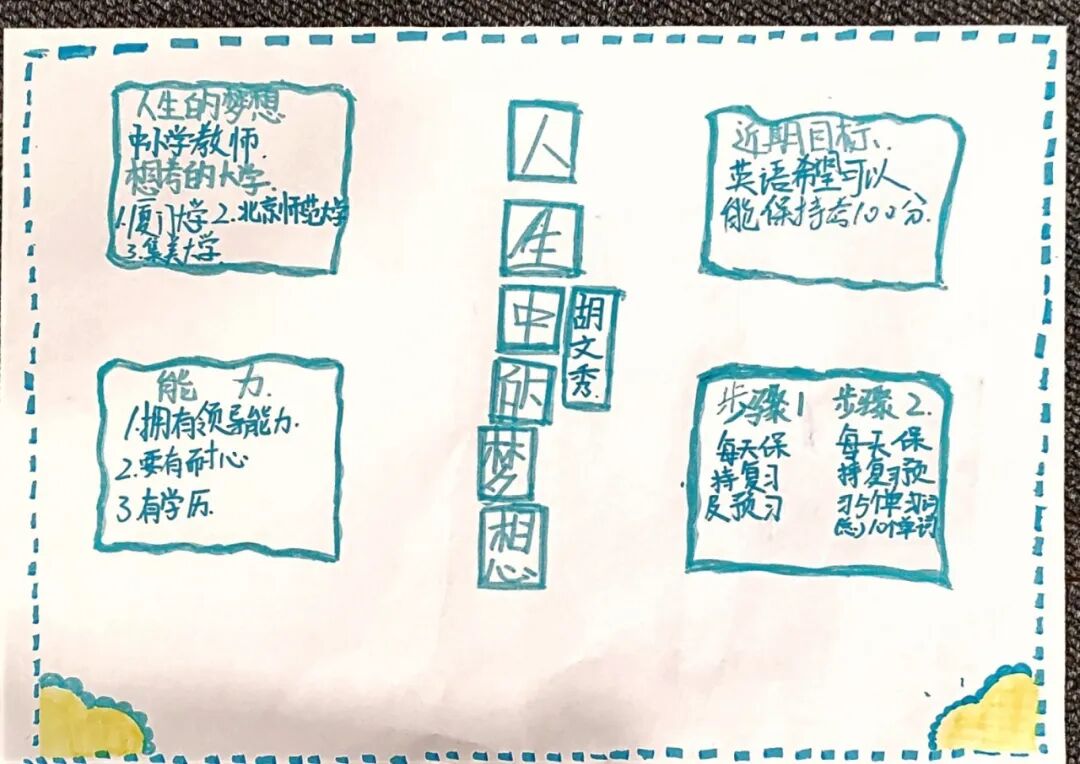 人生的梦想
中小学教师.
想考的大学.
1.厦门大学 2.北京师范大学
3.集美大学
人生中的梦想
胡文秀.
近期目标.
英语希望可以
能保持考100分.
能 力.
1.拥有领导能力.
2.要有耐心
3有学历.
步骤1
每天保
持复习
及预习
步骤2.
每天保
持复习预
习5个单词
10个单词